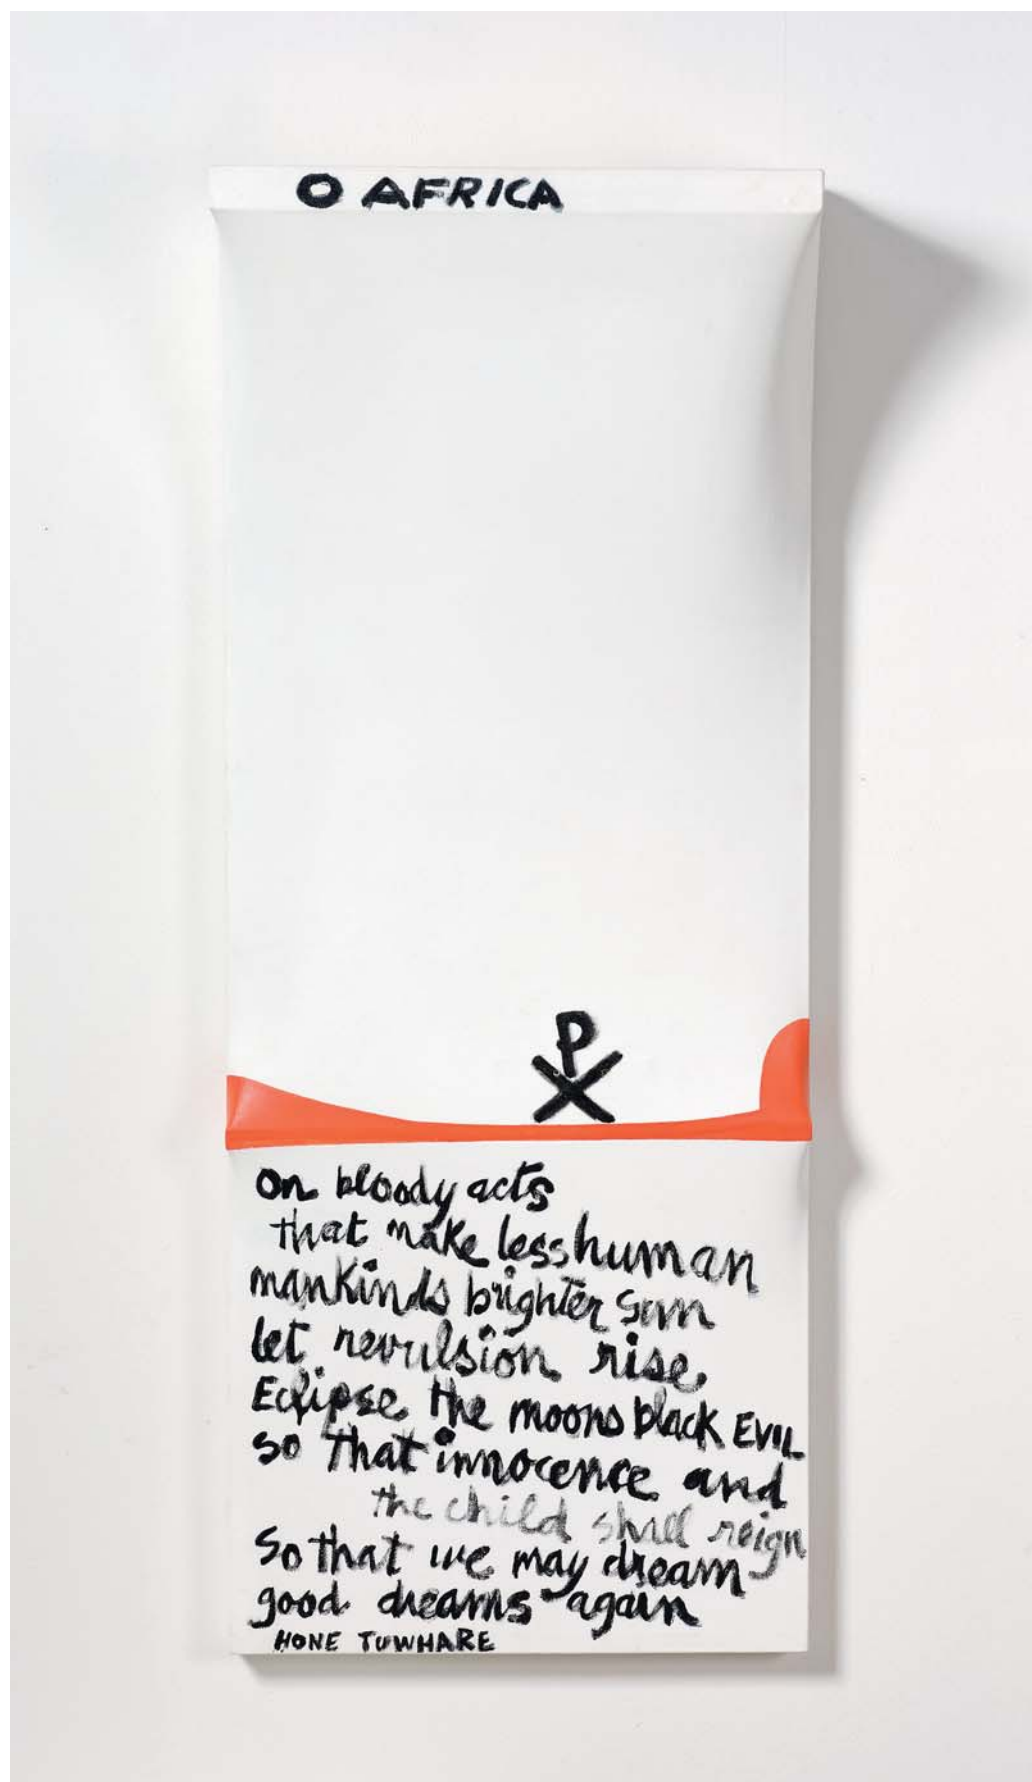 O AFRICA
☧
on bloody acts
that make less human
mankinds brighter sun
let revulsion rise
Eclipse the moons black EVIL
so that innocence and
the child shall reign
So that we may dream
good dreams again
HONE TUWHARE